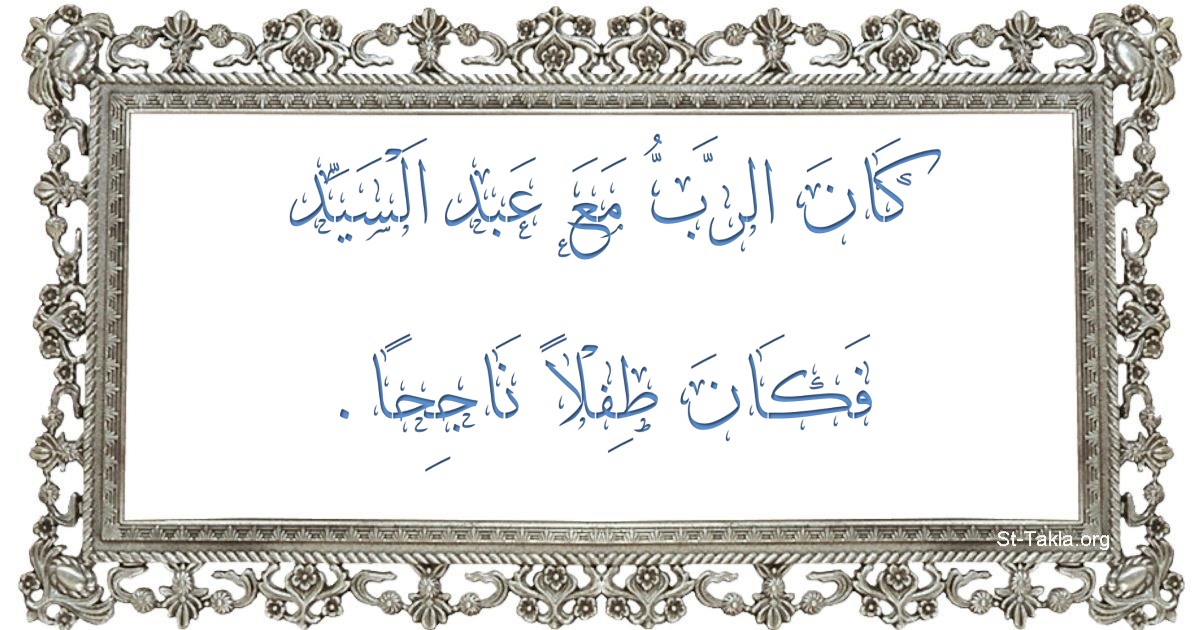 كَانَ الربَّ ُّ مَعَ عَبْد اَلْسَيَّد
فَكَانَ طِفْلاً نَاجِحًا .
St-Takla.org